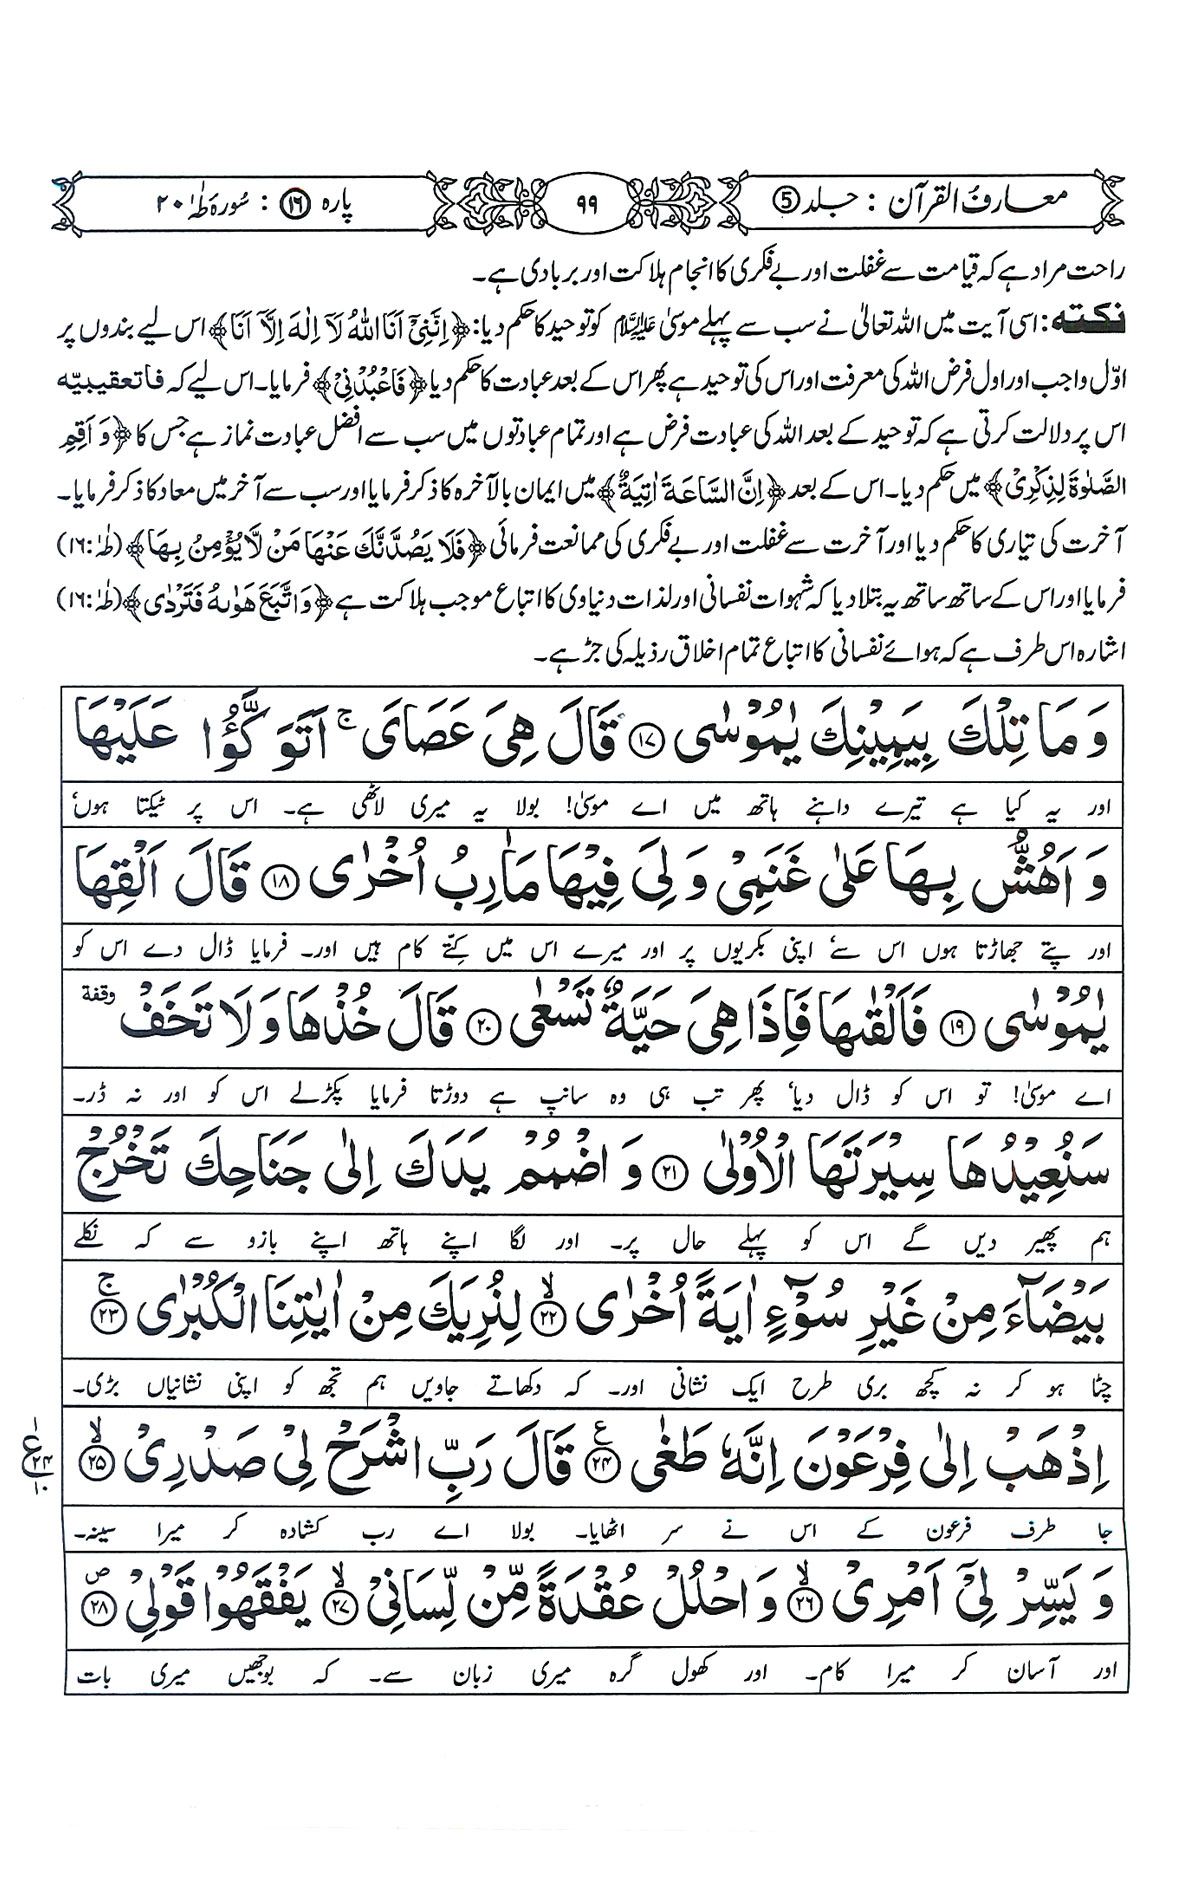 معارفُ القرآن : جلد ⑤ ۹۹ پارہ ⑯ : سُورہ طٰہٰ ۲۰
راحت مراد ہے کہ قیامت سے غفلت اور بے فکری کا انجام ہلاکت اور بربادی ہے۔
نکتہ: اسی آیت میں اللہ تعالیٰ نے سب سے پہلے موسیٰ علیہ السلام کو توحید کا حکم دیا: ﴿اِنَّنِیْۤ اَنَا اللّٰهُ لَاۤ اِلٰهَ اِلَّاۤ اَنَا﴾ اس لیے بندوں پر
اوّل واجب اور اول فرض اللہ کی معرفت اور اس کی توحید ہے پھر اس کے بعد عبادت کا حکم دیا ﴿فَاعْبُدْنِیْ﴾ فرمایا۔ اس لیے کہ فاتعقیبیہ
اس پر دلالت کرتی ہے کہ توحید کے بعد اللہ کی عبادت فرض ہے اور تمام عبادتوں میں سب سے افضل عبادت نماز ہے جس کا ﴿وَ اَقِمِ
الصَّلٰوةَ لِذِكْرِیْ﴾ میں حکم دیا۔ اس کے بعد ﴿اِنَّ السَّاعَةَ اٰتِیَةٌ﴾ میں ایمان بالآخرہ کا ذکر فرمایا اور سب سے آخر میں معاد کا ذکر فرمایا۔
آخرت کی تیاری کا حکم دیا اور آخرت سے غفلت اور بے فکری کی ممانعت فرمائی ﴿فَلَا یَصُدَّنَّكَ عَنْهَا مَنْ لَّا یُؤْمِنُ بِهَا﴾ (طٰہٰ:۱۶)
فرمایا اور اس کے ساتھ ساتھ یہ بتلا دیا کہ شہوات نفسانی اور لذات دنیاوی کا اتباع موجب ہلاکت ہے ﴿وَ اتَّبَعَ هَوٰىهُ فَتَرْدٰی﴾ (طٰہٰ:۱۶)
اشارہ اس طرف ہے کہ ہوائے نفسانی کا اتباع تمام اخلاق رذیلہ کی جڑ ہے۔
وَ مَا تِلْكَ بِیَمِیْنِكَ یٰمُوْسٰی ⑰ قَالَ هِیَ عَصَایَ ۚ اَتَوَكَّؤُا عَلَیْهَا
اور یہ کیا ہے تیرے داہنے ہاتھ میں اے موسیٰ! بولا یہ میری لاٹھی ہے۔ اس پر ٹیکتا ہوں،
وَ اَهُشُّ بِهَا عَلٰی غَنَمِیْ وَ لِیَ فِیْهَا مَاٰرِبُ اُخْرٰی ⑱ قَالَ اَلْقِهَا
اور پتے جھاڑتا ہوں اس سے، اپنی بکریوں پر اور میرے اس میں کِتّے کام ہیں اور۔ فرمایا ڈال دے اس کو
یٰمُوْسٰی ⑲ فَاَلْقٰىهَا فَاِذَا هِیَ حَیَّةٌ تَسْعٰی ⑳ قَالَ خُذْهَا وَ لَا تَخَفْ وقفة
اے موسیٰ! تو اس کو ڈال دیا، پھر تب ہی وہ سانپ ہے دوڑتا فرمایا پکڑ لے اس کو اور نہ ڈر۔
سَنُعِیْدُهَا سِیْرَتَهَا الْاُوْلٰی ㉑ وَ اضْمُمْ یَدَكَ اِلٰی جَنَاحِكَ تَخْرُجْ
ہم پھیر دیں گے اس کو پہلے حال پر۔ اور لگا اپنے ہاتھ اپنے بازو سے کہ نکلے
بَیْضَآءَ مِنْ غَیْرِ سُوْٓءٍ اٰیَةً اُخْرٰی ㉒ۙ لِنُرِیَكَ مِنْ اٰیٰتِنَا الْكُبْرٰی ㉓ۚ
چٹا ہو کر نہ کچھ بری طرح ایک نشانی اور۔ کہ دکھاتے جاویں ہم تجھ کو اپنی نشانیاں بڑی۔
اِذْهَبْ اِلٰی فِرْعَوْنَ اِنَّهٗ طَغٰی ㉔ ع قَالَ رَبِّ اشْرَحْ لِیْ صَدْرِیْ ㉕ۙ
۱ ع ۲۴ ۱۰
جا طرف فرعون کے اس نے سر اٹھایا۔ بولا اے رب کشادہ کر میرا سینہ۔
وَ یَسِّرْ لِیْۤ اَمْرِیْ ㉖ۙ وَ احْلُلْ عُقْدَةً مِّنْ لِّسَانِیْ ㉗ۙ یَفْقَهُوْا قَوْلِیْ ㉘ص
اور آسان کر میرا کام۔ اور کھول گرہ میری زبان سے۔ کہ بوجھیں میری بات